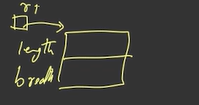 r1
length
breadth